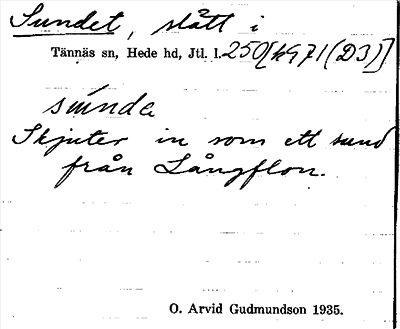 Sundet, slått i
Tännäs sn, Hede hd, Jtl. l. 250[kg71(D3)]
súnda
Skjuter in som ett sund
från Långflon.
O. Arvid Gudmundson 1935.